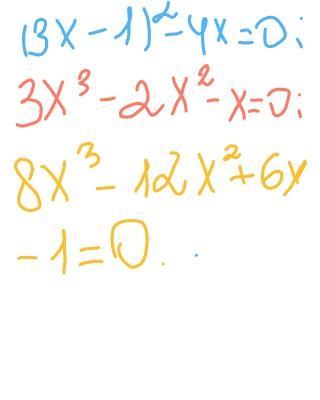 (3x - 1)² - 4x = 0;
3x³ - 2x² - x = 0;
8x³ - 12x² + 6x
- 1 = 0.